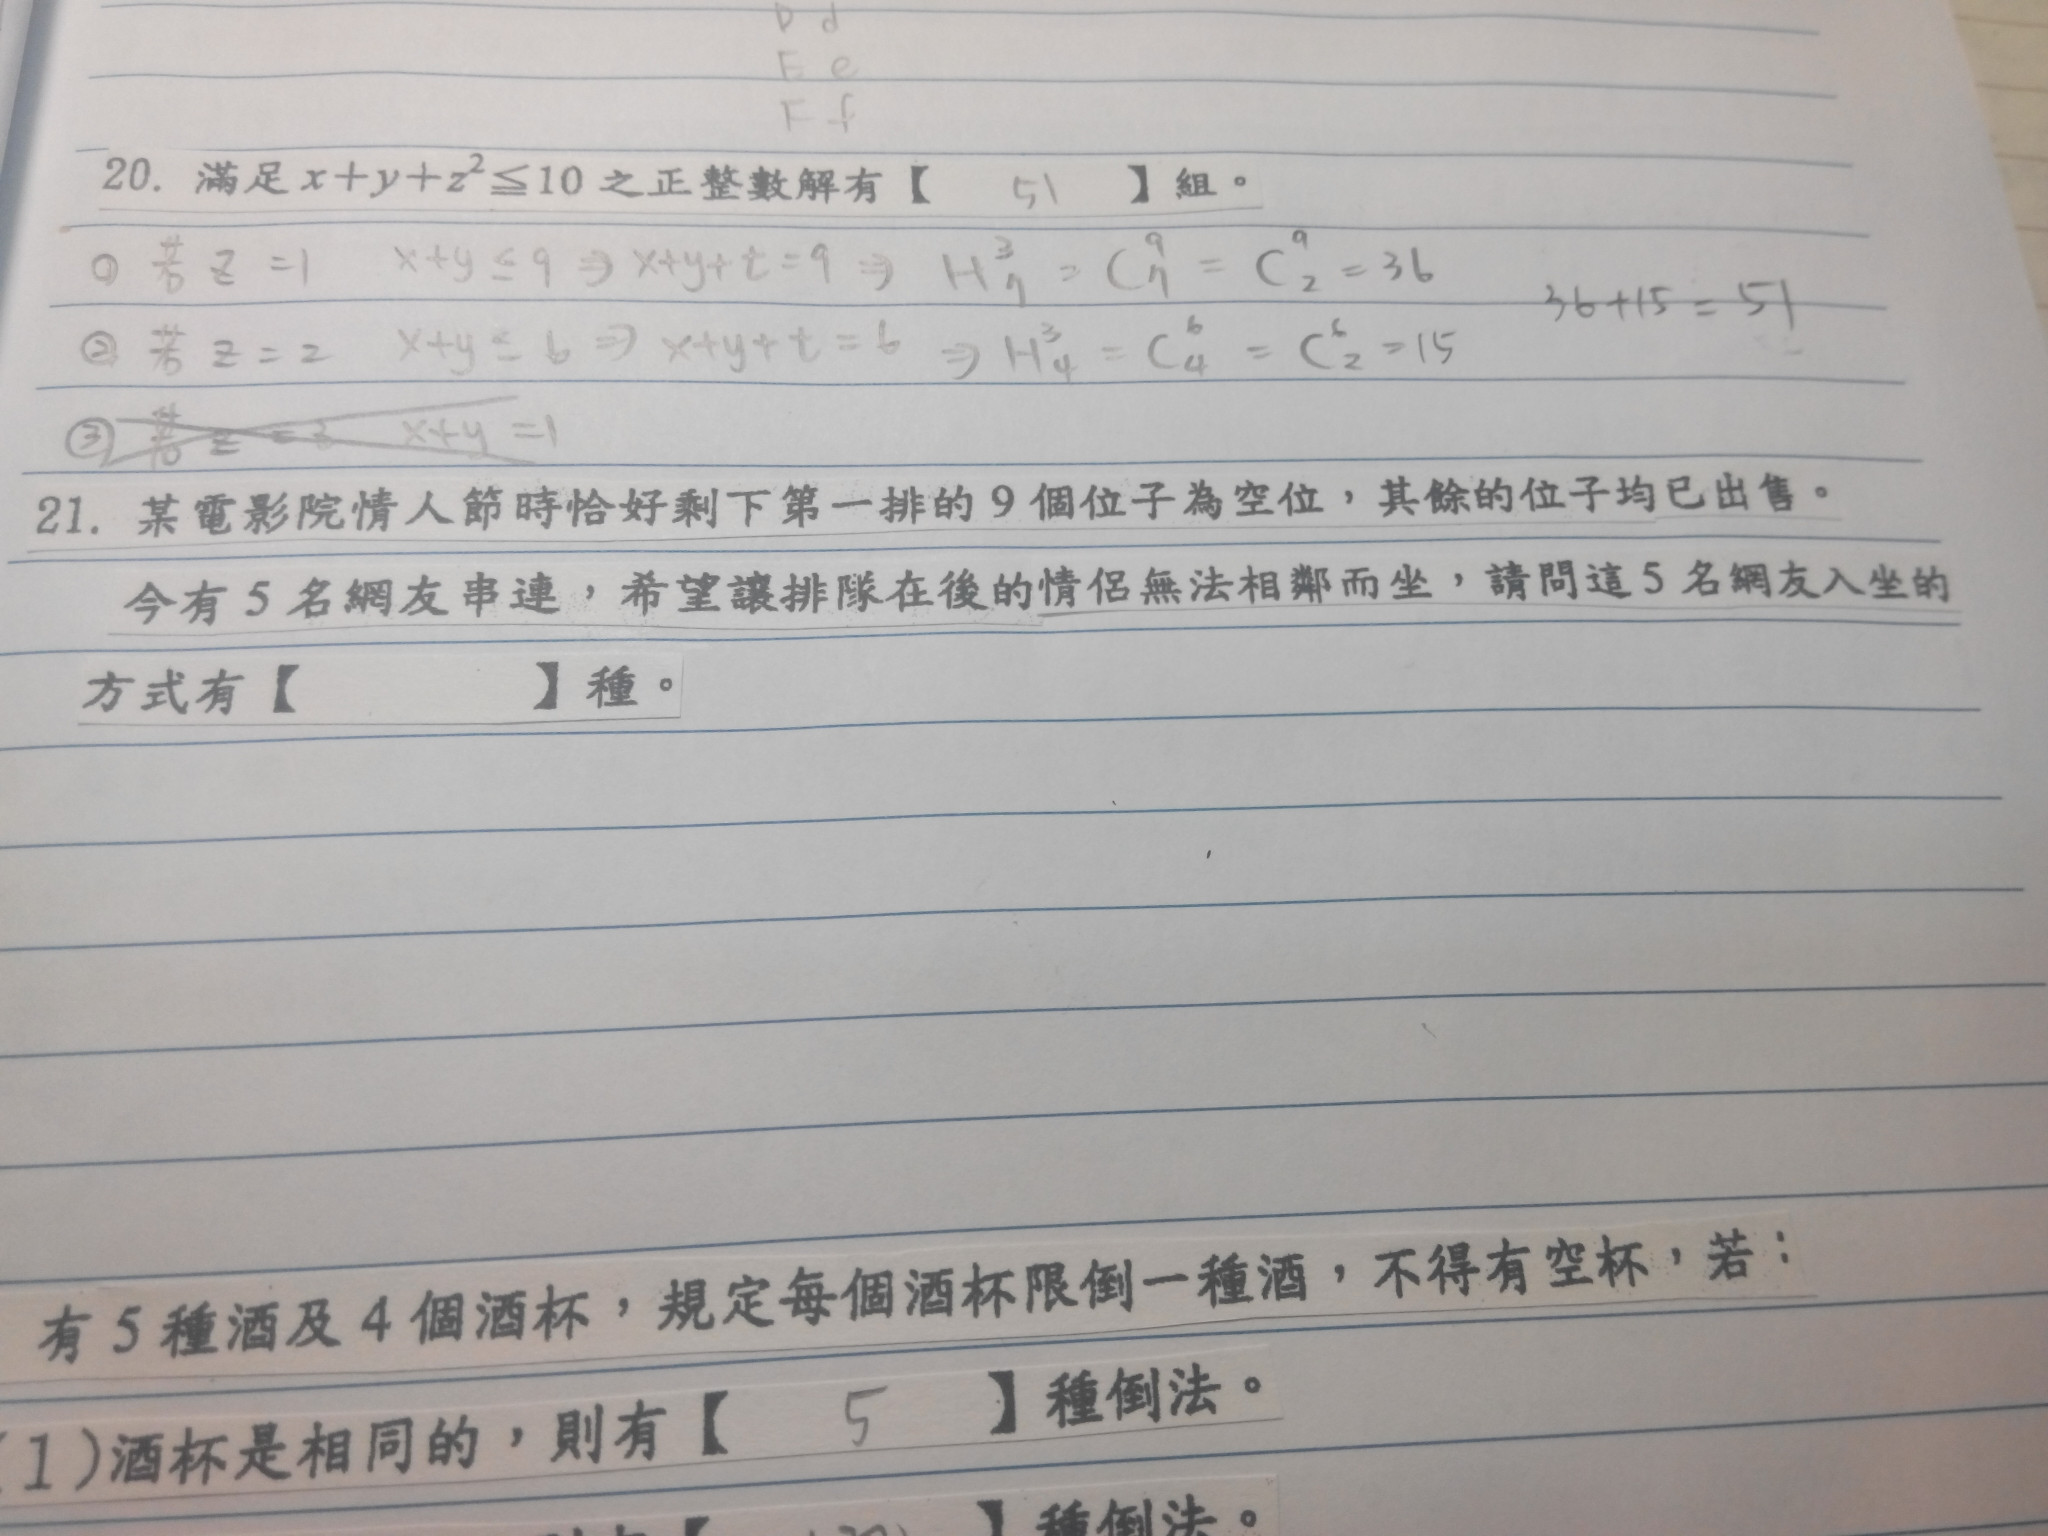 D d
E e
F f
20. 滿足 x+y+z²≦10 之正整數解有【 51 】組。
① 若 z=1 x+y≤9 ⇒ x+y+t=9 ⇒ H³₇ = C⁹₇ = C⁹₂ = 36
36+15=51
② 若 z=2 x+y≤6 ⇒ x+y+t=6 ⇒ H³₄ = C⁶₄ = C⁶₂ = 15
③ 若 z=3 x+y=1
21. 某電影院情人節時恰好剩下第一排的9個位子為空位，其餘的位子均已出售。
今有5名網友串連，希望讓排隊在後的情侶無法相鄰而坐，請問這5名網友入坐的
方式有【 】種。
有5種酒及4個酒杯，規定每個酒杯限倒一種酒，不得有空杯，若：
(1)酒杯是相同的，則有【 5 】種倒法。
【 】種倒法。